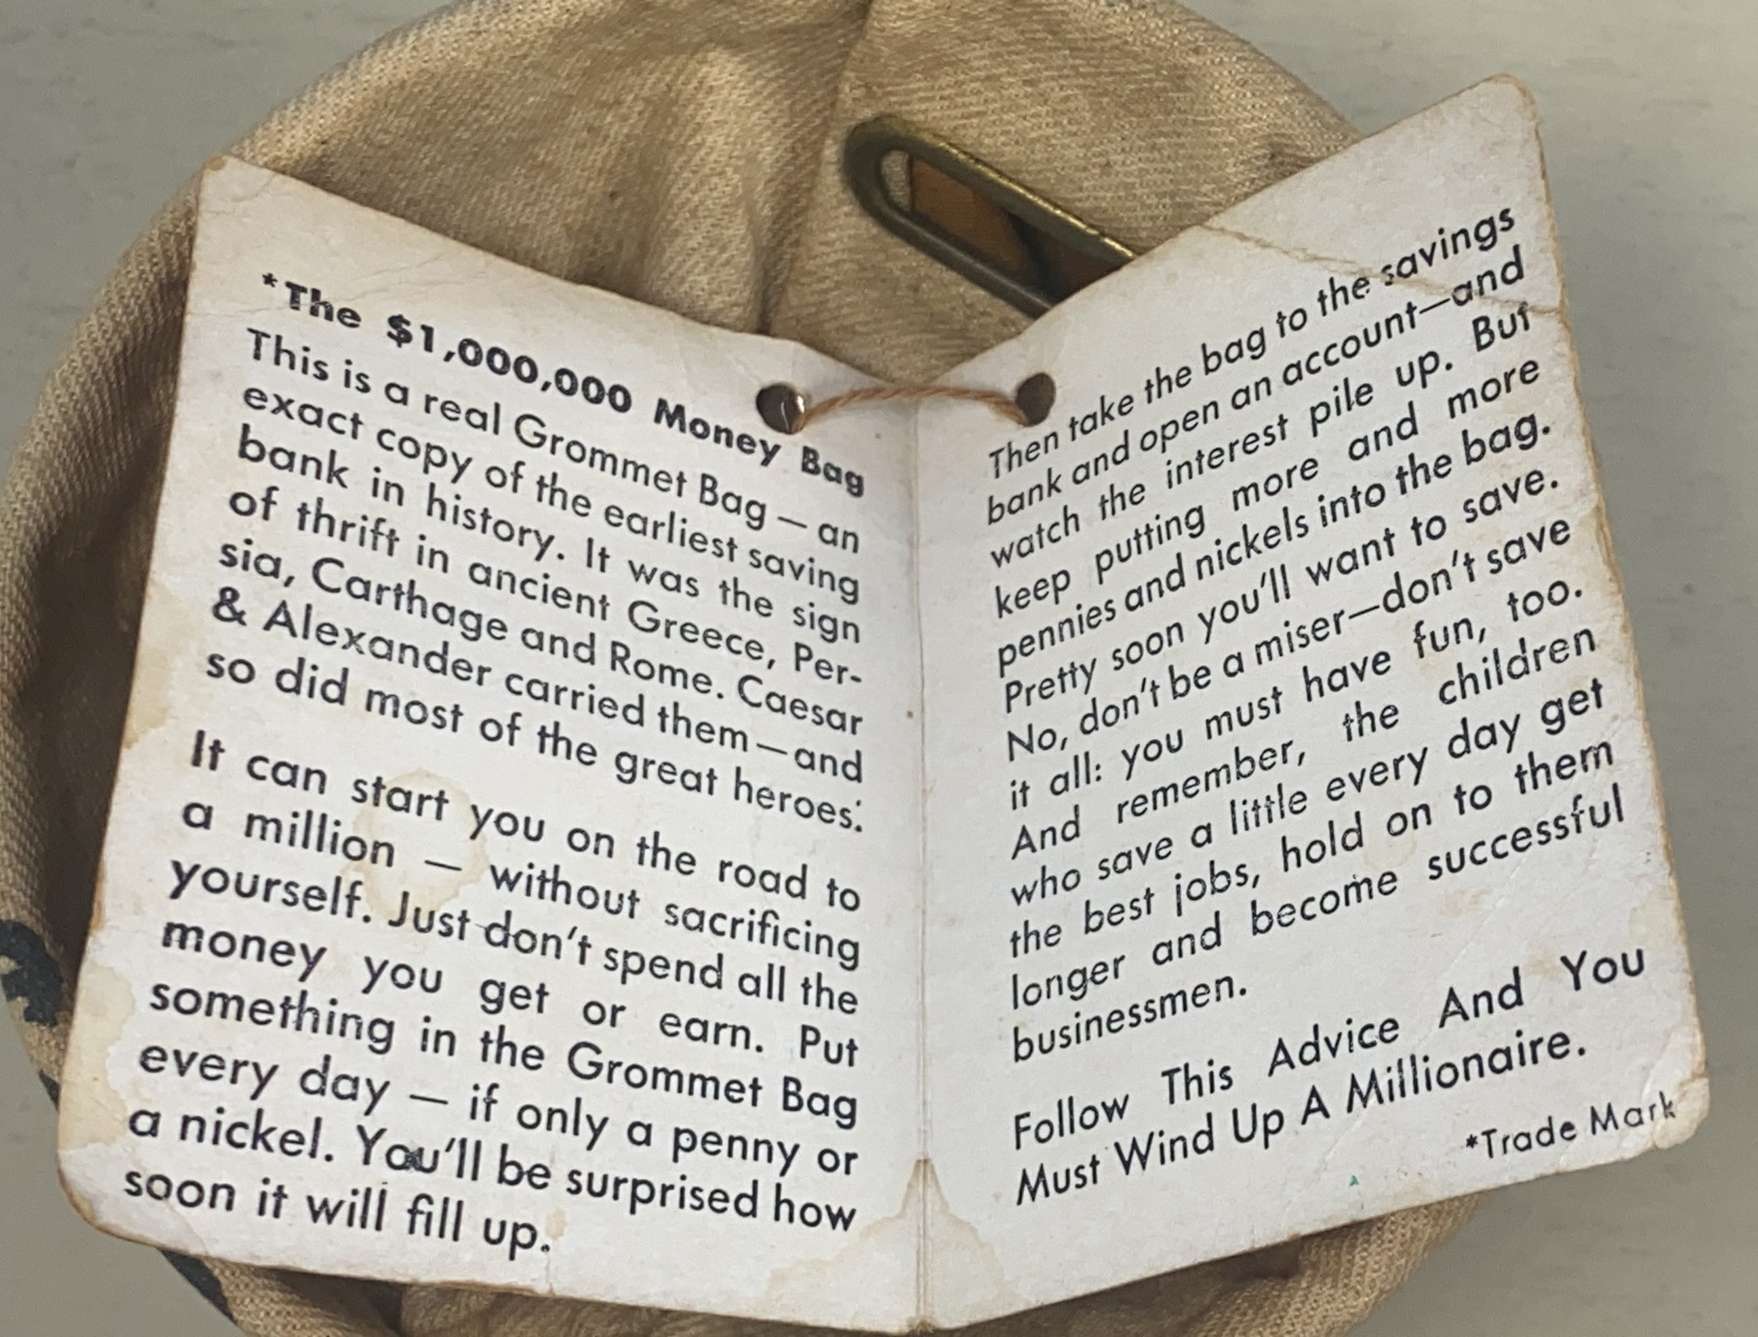 *The $1,000,000 Money Bag
This is a real Grommet Bag — an
exact copy of the earliest saving
bank in history. It was the sign
of thrift in ancient Greece, Per-
sia, Carthage and Rome. Caesar
& Alexander carried them—and
so did most of the great heroes.
It can start you on the road to
a million — without sacrificing
yourself. Just don't spend all the
money you get or earn. Put
something in the Grommet Bag
every day — if only a penny or
a nickel. You'll be surprised how
soon it will fill up.
Then take the bag to the savings
bank and open an account—and
watch the interest pile up. But
keep putting more and more
pennies and nickels into the bag.
Pretty soon you'll want to save.
No, don't be a miser—don't save
it all: you must have fun, too.
And remember, the children
who save a little every day get
the best jobs, hold on to them
longer and become successful
businessmen.
Follow This Advice And You
Must Wind Up A Millionaire.
*Trade Mark